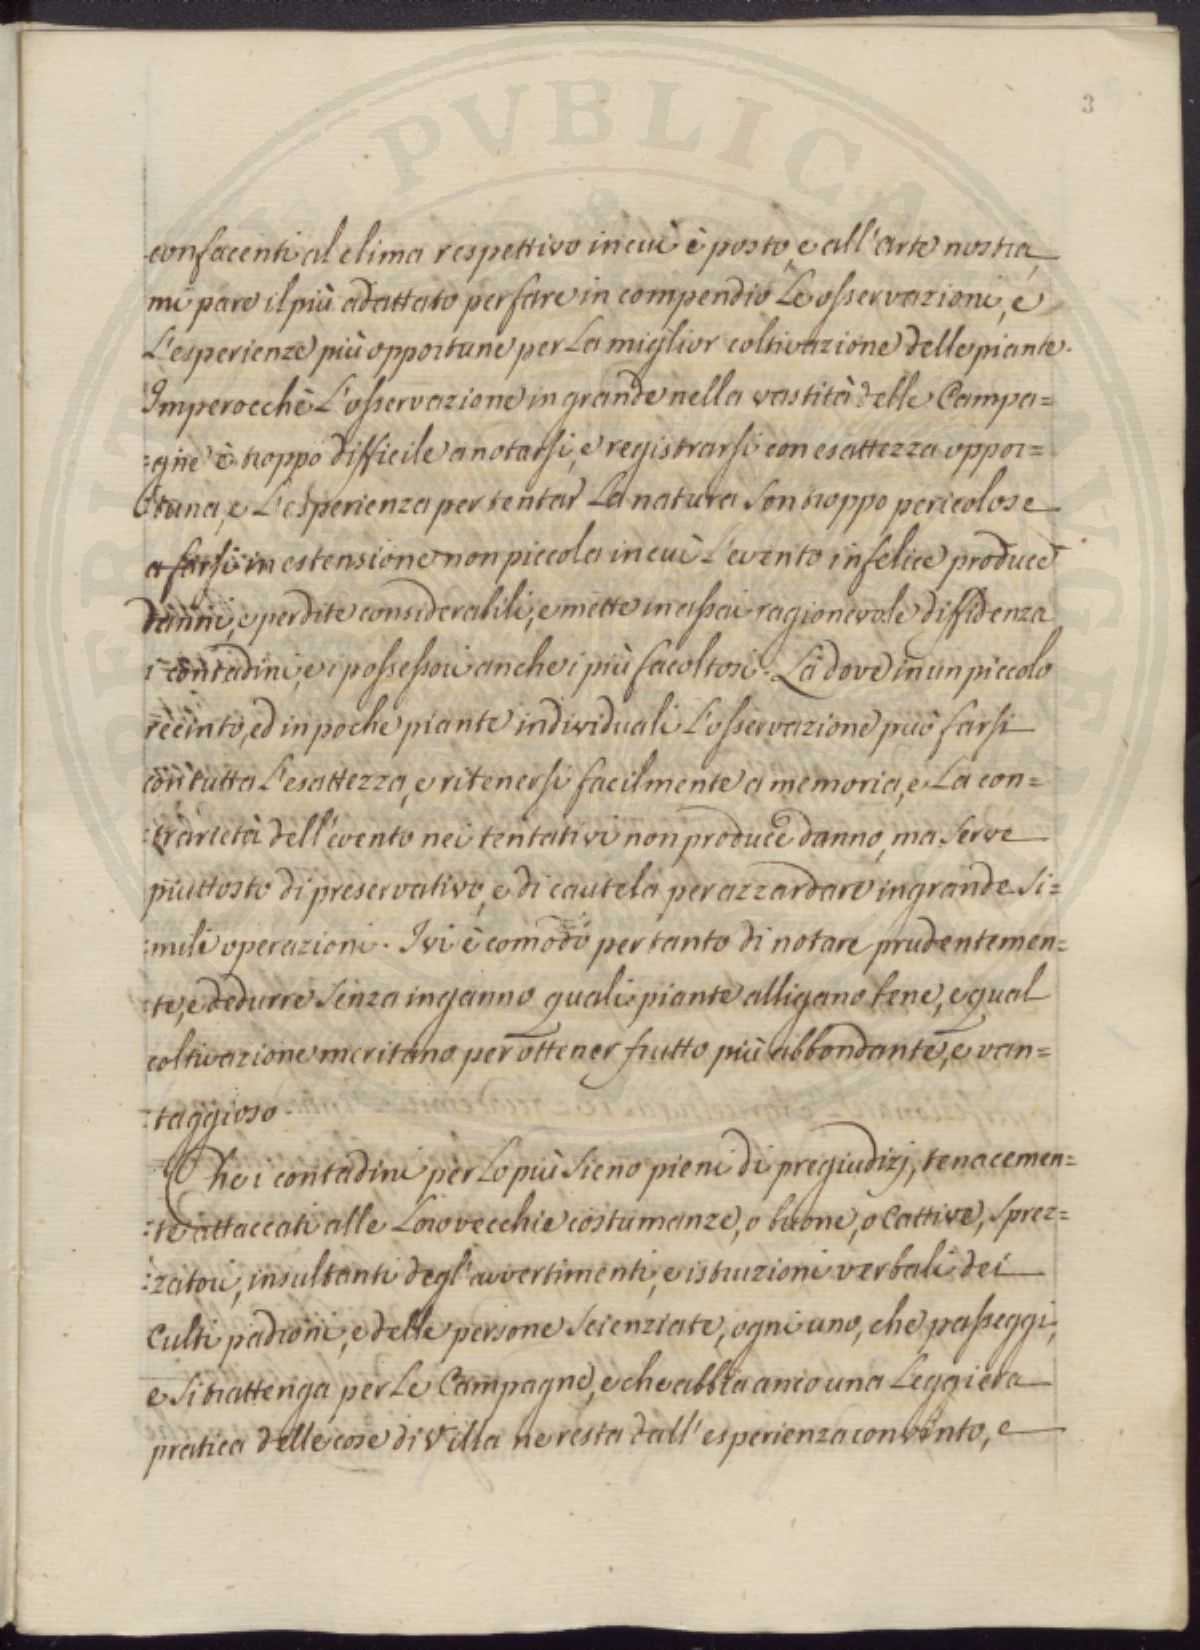 3
confacenti al clima respettivo in cui è posto, e all'arte nostra,
mi pare il più adattato per fare in compendio Le osservazioni, e
L'esperienze più opportune per La miglior coltivazione delle piante.
Imperocchè L'osservazione in grande nella vastità delle Campa=
=gne è troppo difficile a notarsi, e registrarsi con esattezza oppor=
=tuna, e L'esperienza per tentar La natura son troppo pericolose
a farsi in estensione non piccola in cui L'evento infelice produce
danni, e perdite considerabili, e mette in assai ragionevole diffidenza
i contadini, e i possessori anche i più facoltosi. Là dove in un piccolo
recinto, ed in poche piante individuali L'osservazione può farsi
con tutta L'esattezza, e ritenersi facilmente a memoria, e La con=
=trarietà dell'evento nei tentativi non produce danno, ma serve
piuttosto di preservativo, e di cautela per azzardare in grande si=
=mili operazioni. Ivi è comodo per tanto di notare prudentemen=
=te, e dedurre senza inganno quali piante alligano bene, e qual
coltivazione meritano per ottener frutto più abbondante, e van=
=taggioso.
Che i contadini per Lo più sieno pieni di pregiudizj, tenacemen=
=te attaccati alle Loro vecchie costumanze, o buone, o Cattive, sprez=
=zatori, insultanti degl'avvertimenti, e istruzioni verbali dei
Culti padroni, e delle persone scienziate, ogni uno, che passeggi,
e si trattenga per Le Campagne, e che abbia anco una Leggiera
pratica delle cose di Villa ne resta dall'esperienza convinto, e
PVBLICA